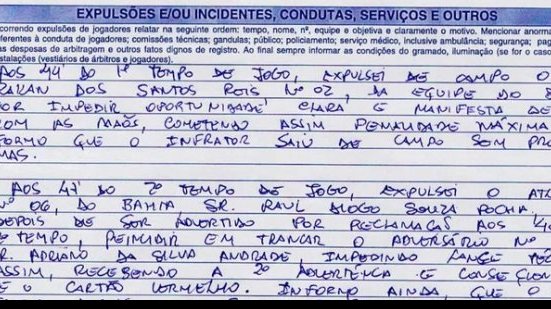 EXPULSÕES E/OU INCIDENTES, CONDUTAS, SERVIÇOS E OUTROS
correndo expulsões de jogadores relatar na seguinte ordem: tempo, nome, nº, equipe e objetiva e claramente o motivo. Mencionar anorma
eferentes à conduta de jogadores; comissões técnicas; gandulas; público; policiamento; serviço médico, inclusive ambulância; segurança; pag
as despesas de arbitragem e outros fatos dignos de registro. Ao final sempre informar as condições do gramado, iluminação (se for o caso
nstalações (vestiários de árbitros e jogadores).
AOS 44' DO 1º TEMPO DE JOGO, EXPULSEI DE CAMPO O
DOS SANTOS REIS Nº 02, DA EQUIPE DO
POR IMPEDIR OPORTUNIDADE CLARA E MANIFESTA DE
COM AS MÃOS, COMETENDO ASSIM PENALIDADE MÁXIMA
FORMO QUE O INFRATOR SAIU DE CAMPO SEM PRO
MAS.
AOS 47' DO 2º TEMPO DE JOGO, EXPULSEI O ATA
Nº 06, DO BAHIA SR. RAUL DIOGO SOUZA ROCHA,
DEPOIS DE SER ADVERTIDO POR RECLAMAÇÃO AOS
TEMPO, REINCIDIR EM TRANCAR O ADVERSÁRIO Nº
R. ADRIANO DA SILVA ANDRADE, IMPEDINDO LANCE
ASSIM, RECEBENDO A 2º ADVERTÊNCIA E
E O CARTÃO VERMELHO. INFORMO AINDA, QUE O